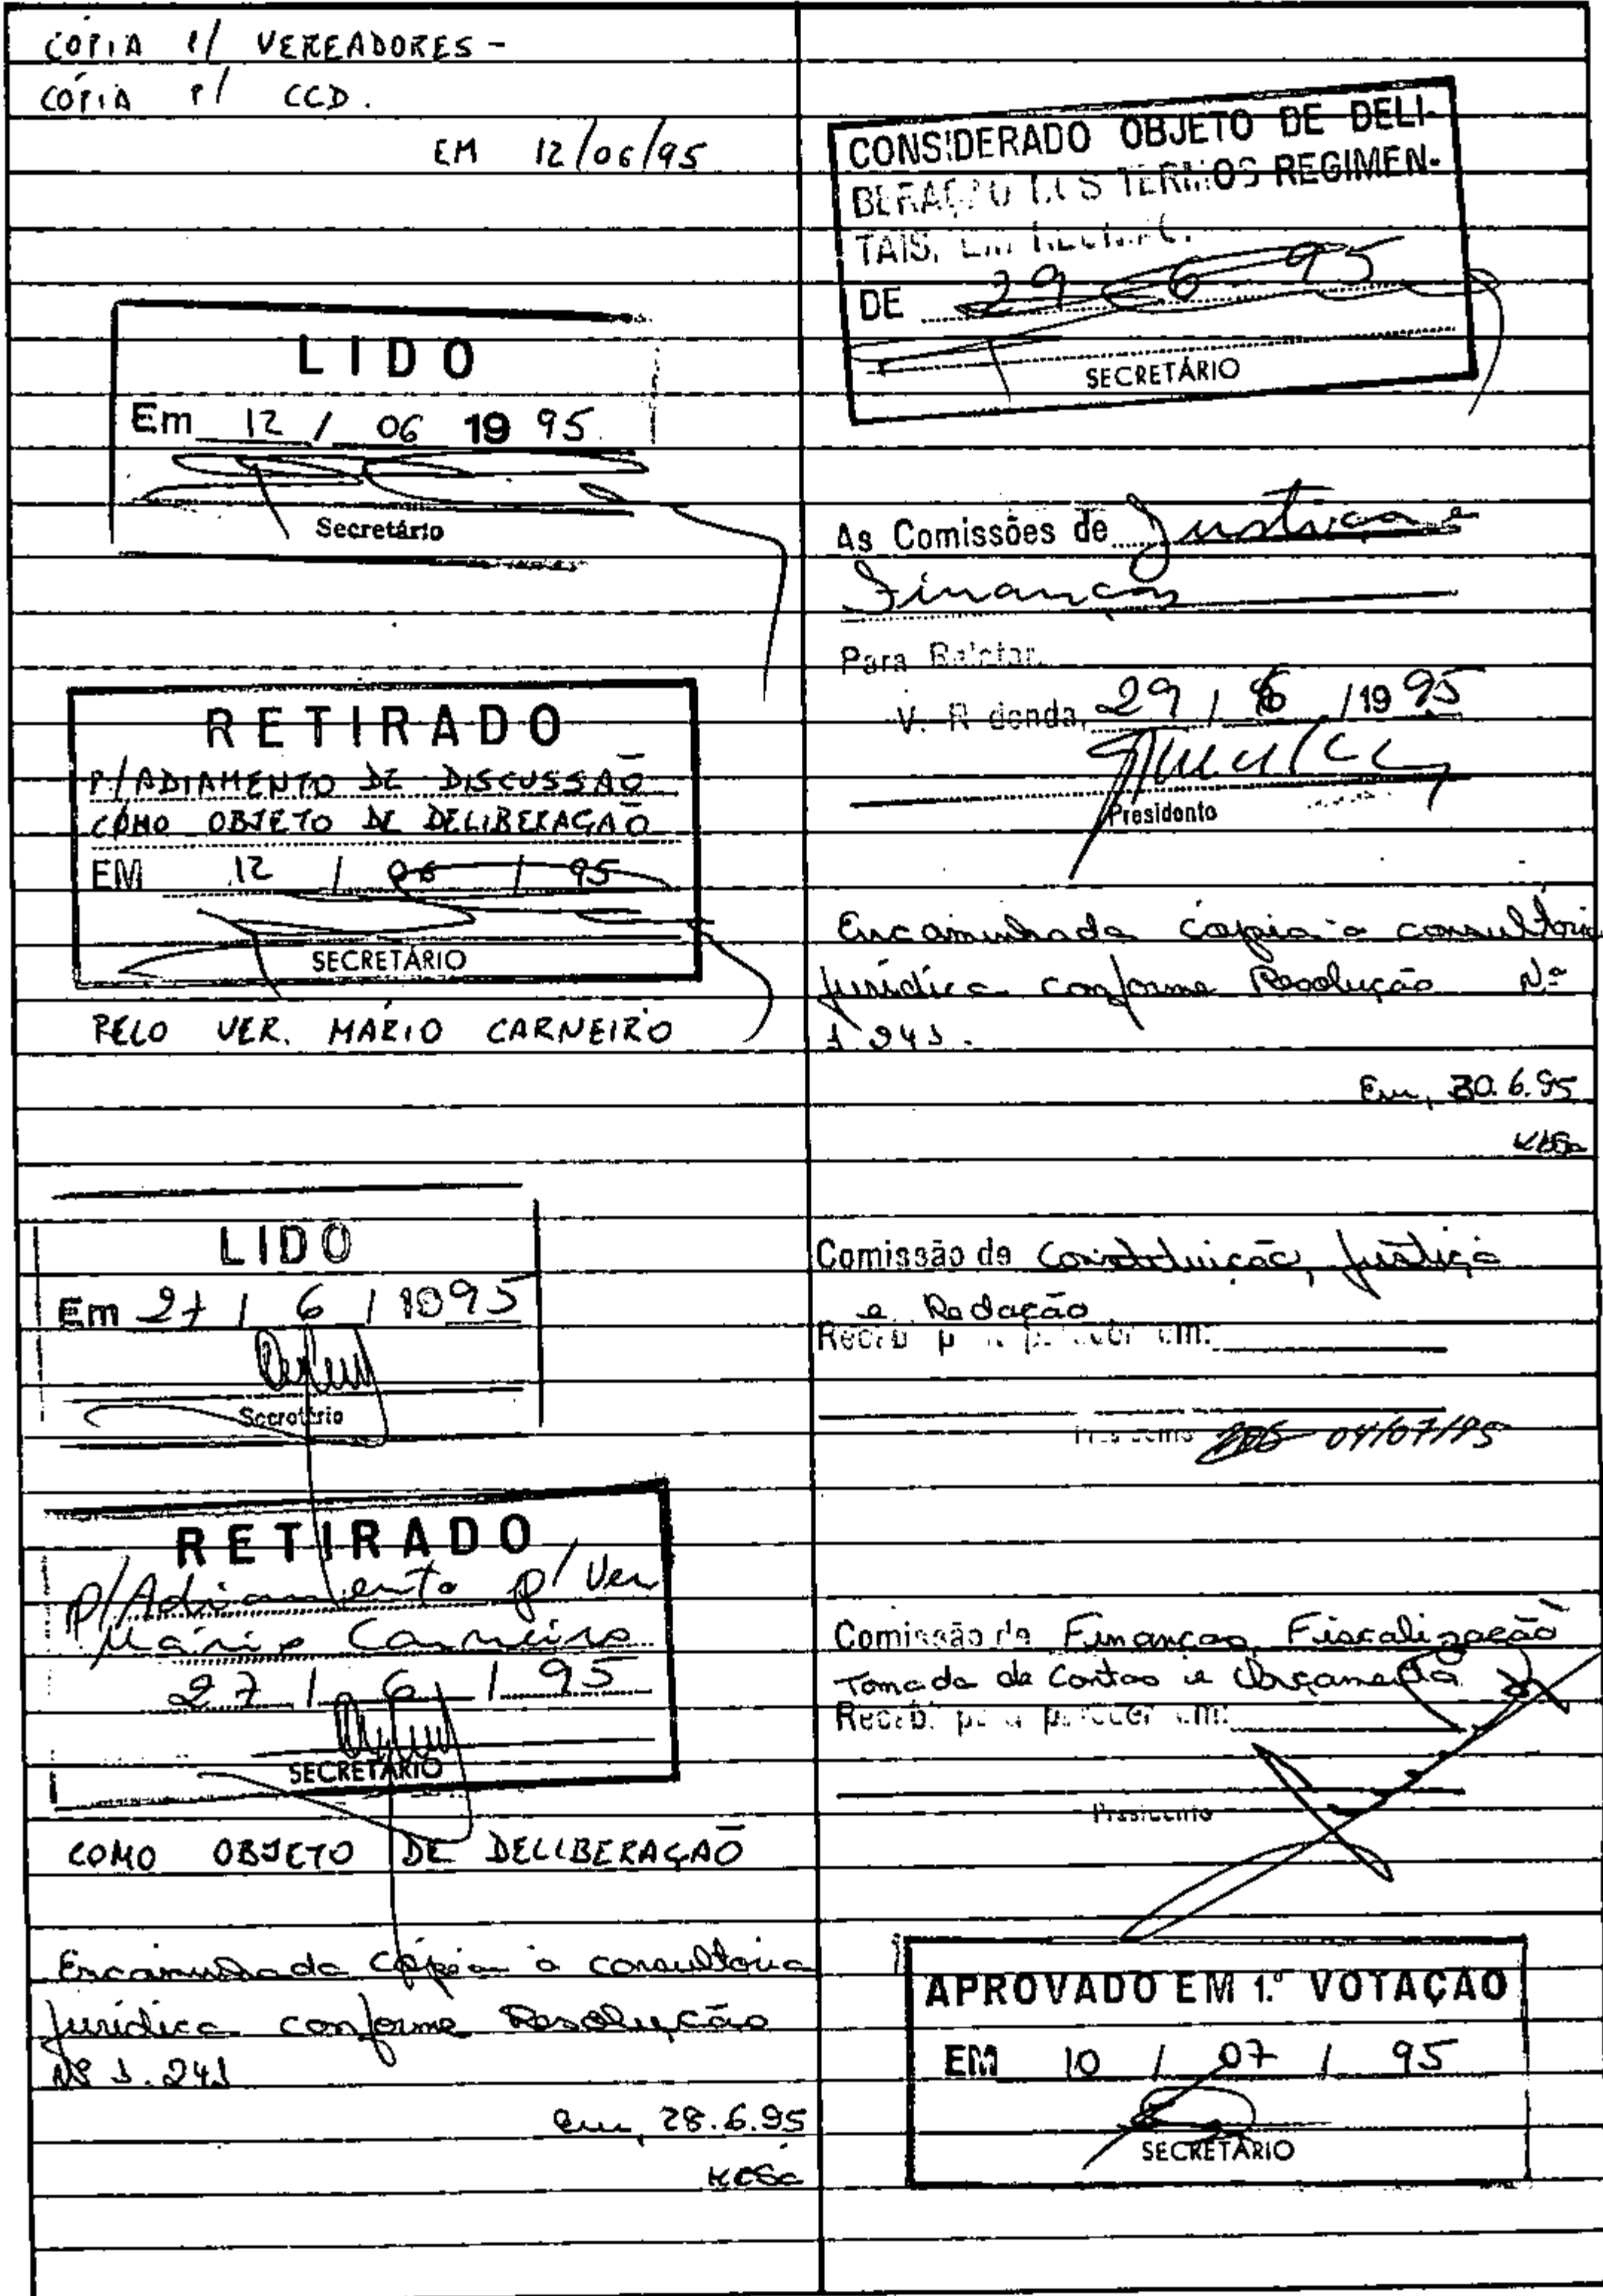 CÓPIA P/ VEREADORES -
CÓPIA P/ CCD.
EM 12/06/95
LIDO
Em 12 / 06 19 95
Secretário
RETIRADO
P/ADIAMENTO DE DISCUSSÃO
COMO OBJETO DE DELIBERAÇÃO
EM 12 / 06 / 95
SECRETÁRIO
PELO VER. MÁRIO CARNEIRO
LIDO
Em 27 / 6 / 1995
Secretário
RETIRADO
P/Adiamento p/ Ver
Mário Carneiro
27 / 6 / 95
SECRETÁRIO
COMO OBJETO DE DELIBERAÇÃO
Encaminhada cópia à consultoria
jurídica conforme Resolução
Nº 1.241
em, 28.6.95
CONSIDERADO OBJETO DE DELI-
BERAÇÃO NOS TERMOS REGIMEN-
TAIS, EM
DE 29 6 95
SECRETÁRIO
As Comissões de Justiça e
Finanças
Para Relatar
V. R donda, 29 / 6 / 19 95
Presidente
Encaminhada cópia à consultoria
jurídica conforme Resolução Nº
1 241.
Em, 30.6.95
Comissão de Constituição, Justiça
e Redação
Receb. para parecer em:
Presidente 04/07/95
Comissão de Finanças, Fiscalização
Tomada de Contas e Orçamento
Receb. para parecer em:
Presidente
APROVADO EM 1.ª VOTAÇÃO
EM 10 / 07 / 95
SECRETÁRIO